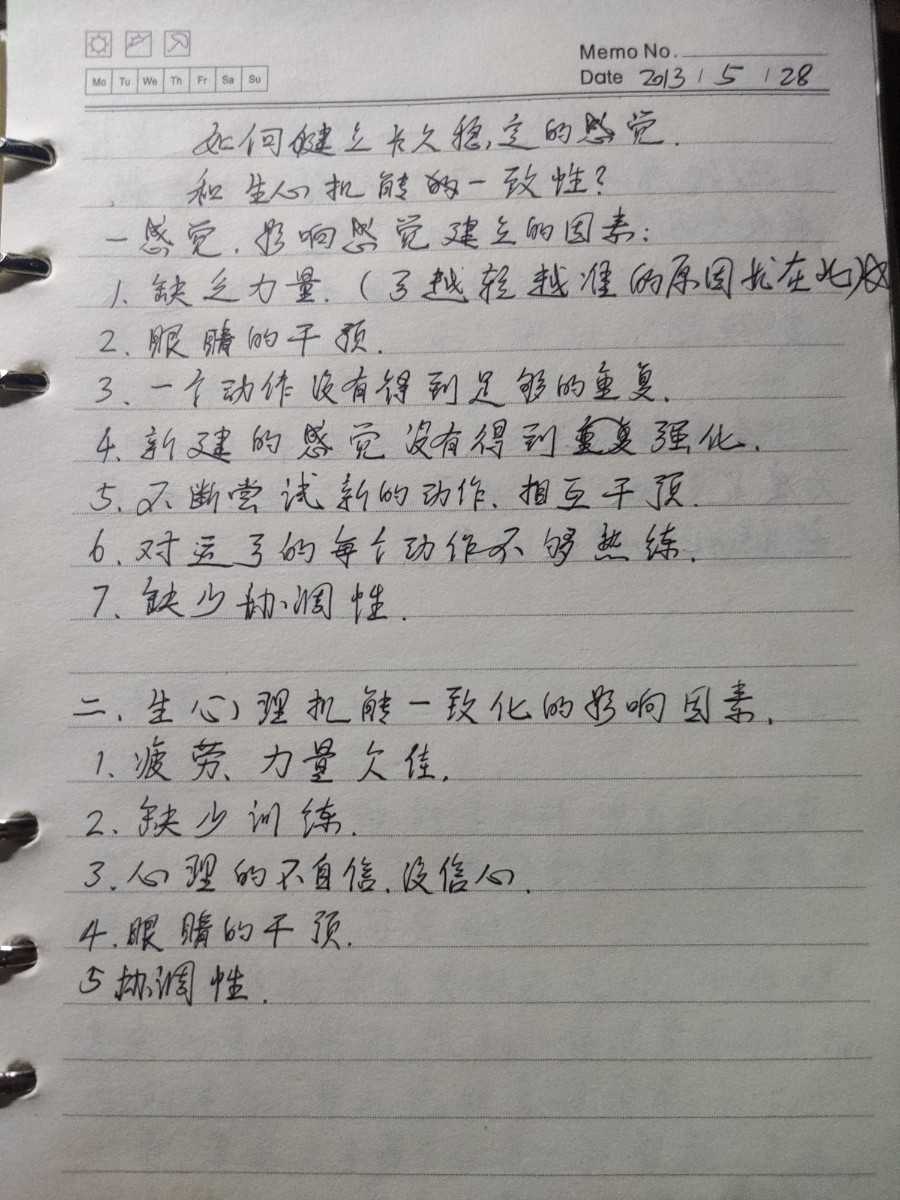 Memo No.
Mo Tu We Th Fr Sa Su
Date 2013 / 5 / 28
如何健立长久稳定的感觉.
和生心机能的一致性?
一感觉.影响感觉建立的因素:
1.缺乏力量.(弓越轻越准的原因就在此)
2.眼睛的干预.
3.一个动作没有得到足够的重复.
4.新建的感觉没有得到重复强化.
5.不断尝试新的动作.相互干预.
6.对运弓的每个动作不够熟练.
7.缺少协调性.
二.生心理机能一致化的影响因素.
1.疲劳、力量欠佳.
2.缺少训练.
3.心理的不自信.没信心.
4.眼睛的干预.
5协调性.